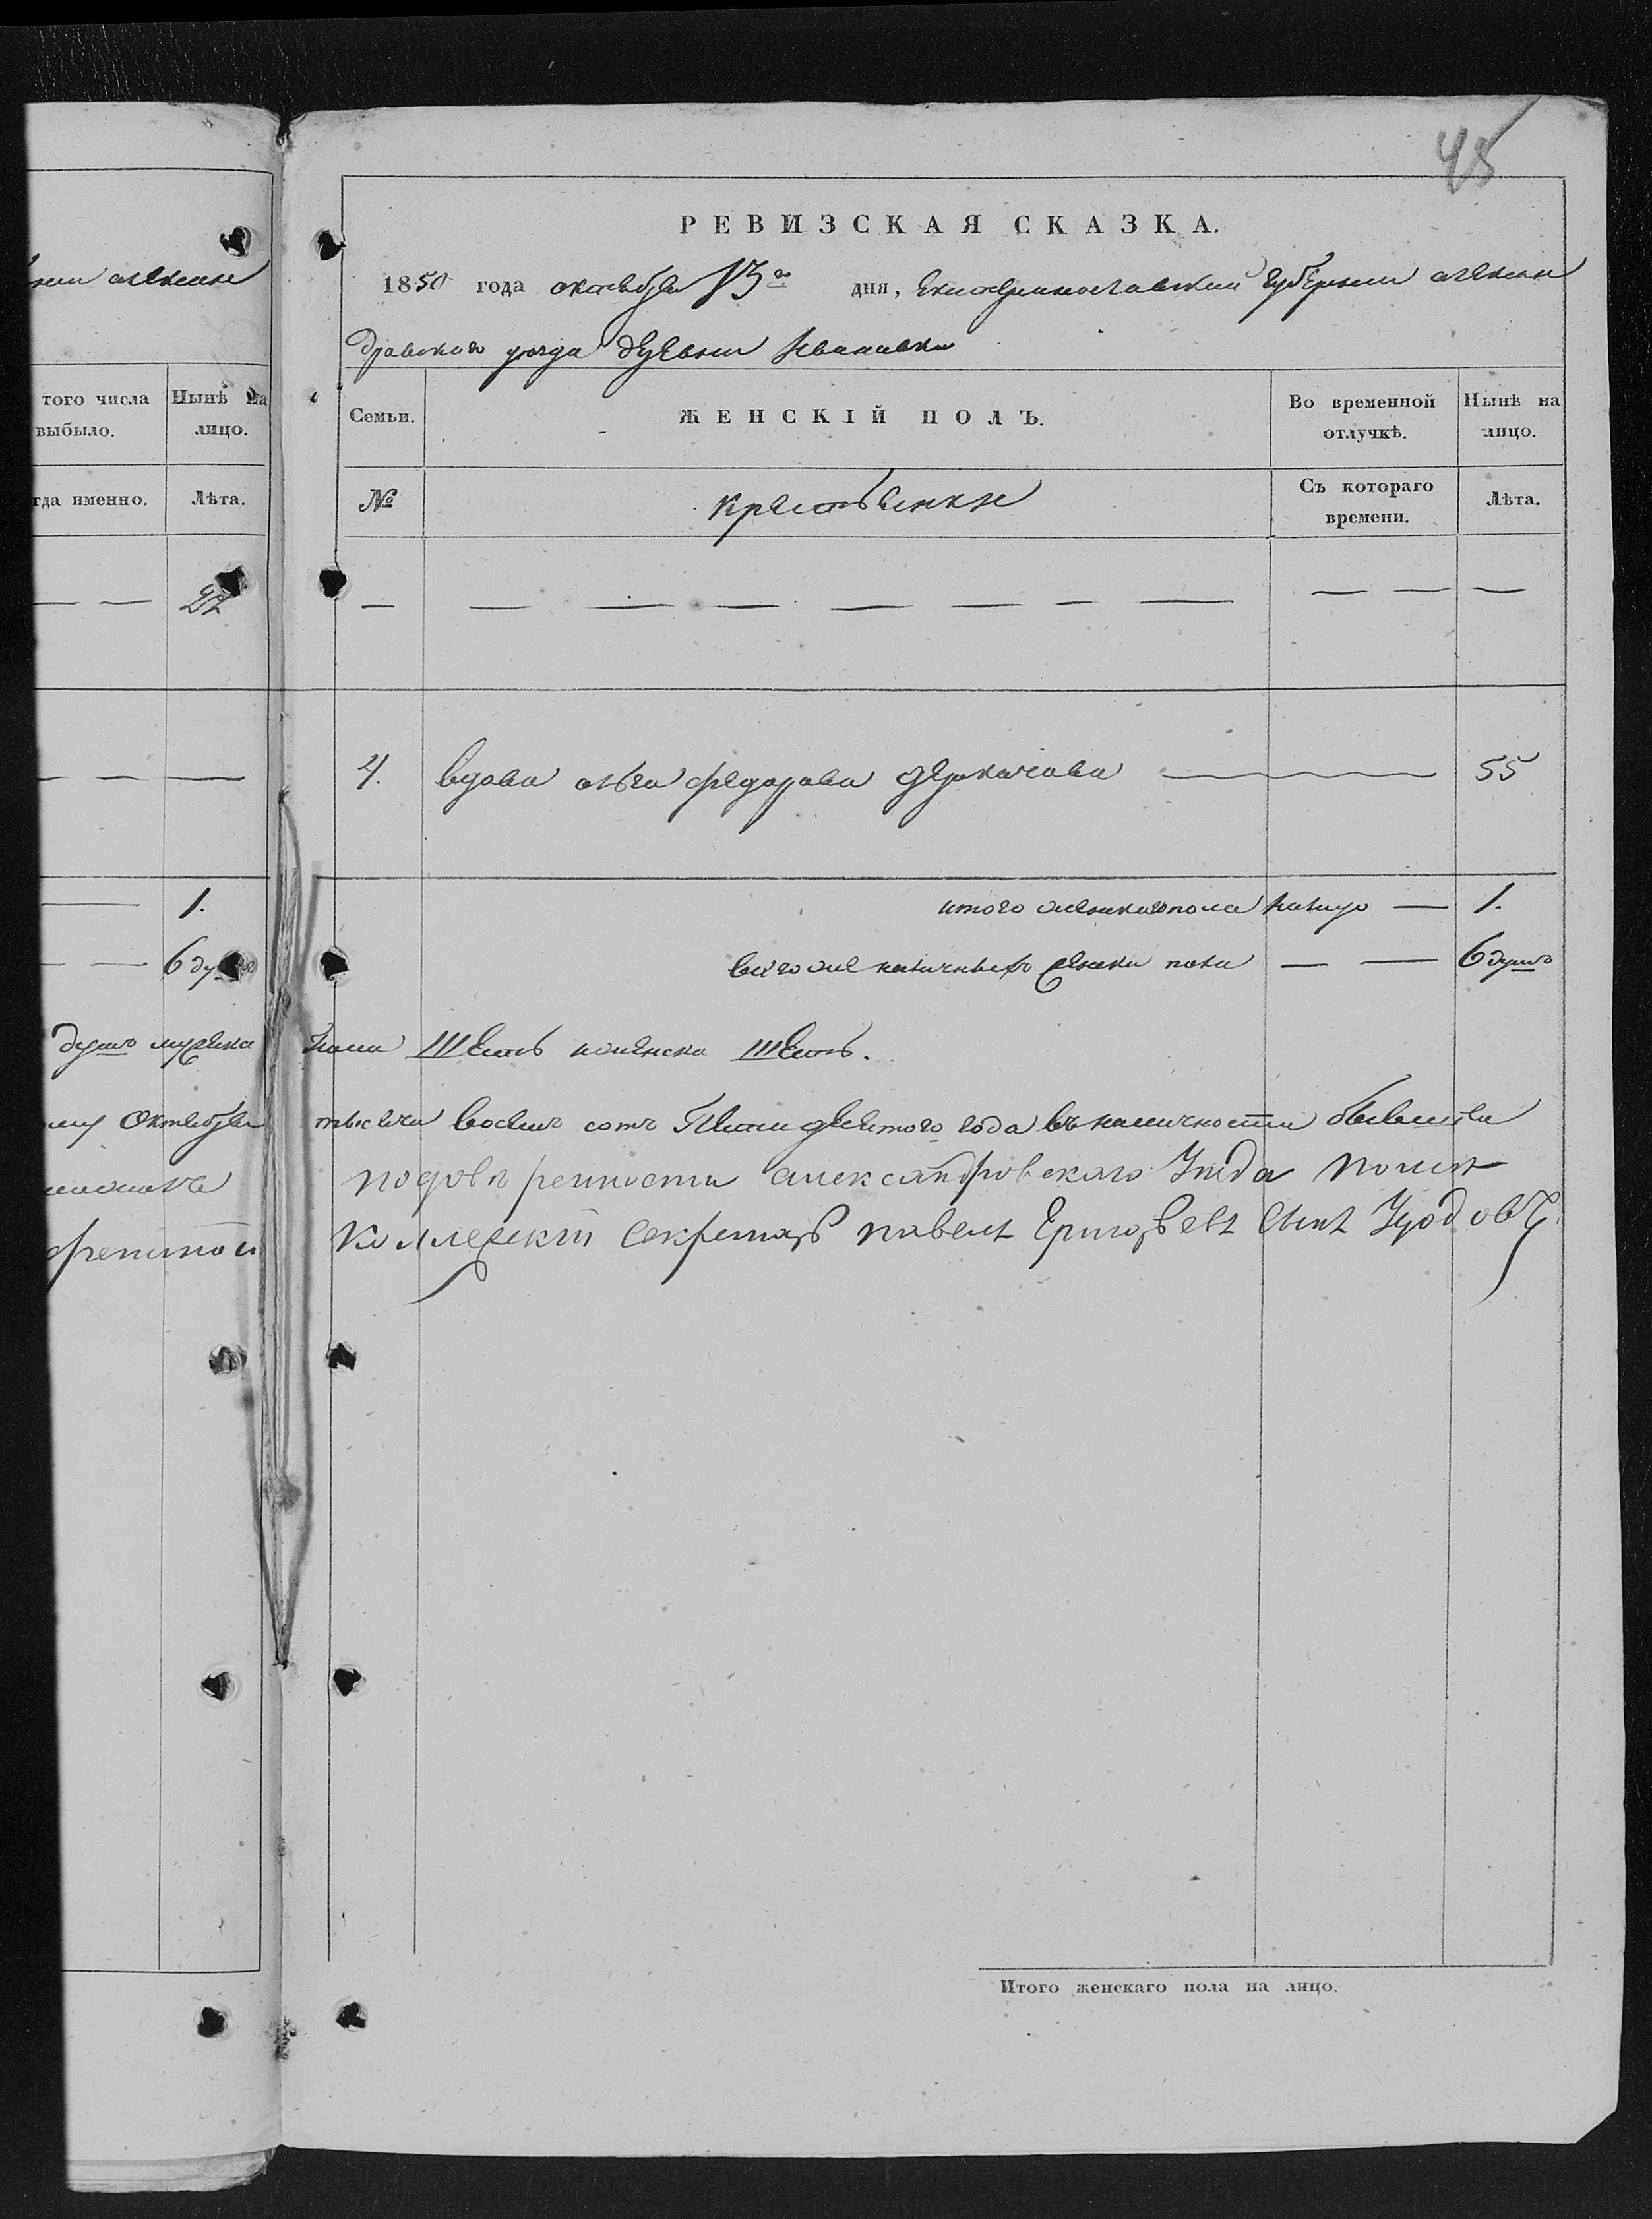 45
РЕВИЗСКАЯ СКАЗКА.
1850 года октября 13го дня, Екатеринославской губернии алексан
дровскаго уезда деревни Ивановки
того числа выбыло.
Нынѣ на лицо.
Семьи.
ЖЕНСКІЙ ПОЛЪ.
Во временной отлучкѣ.
Нынѣ на лицо.
гда именно.
Лѣта.
№
крестьянки
Съ котораго времени.
Лѣта.
— — — — — — — — — — —
4. вдова ольга федорова деркачова — 55
1.
итого женскаго пола налицо — 1.
6 душ
всего же наличныхъ женска пола — — 6 душъ
душъ мужска пола шесть и женска шесть.
Октября тысяча восемь сотъ Пятидесятого года въ наличности
подовѣренности александровскаго Уѣзда
Коллежскій Секретарь павелъ Григорьевъ сынъ
Итого женскаго пола на лицо.